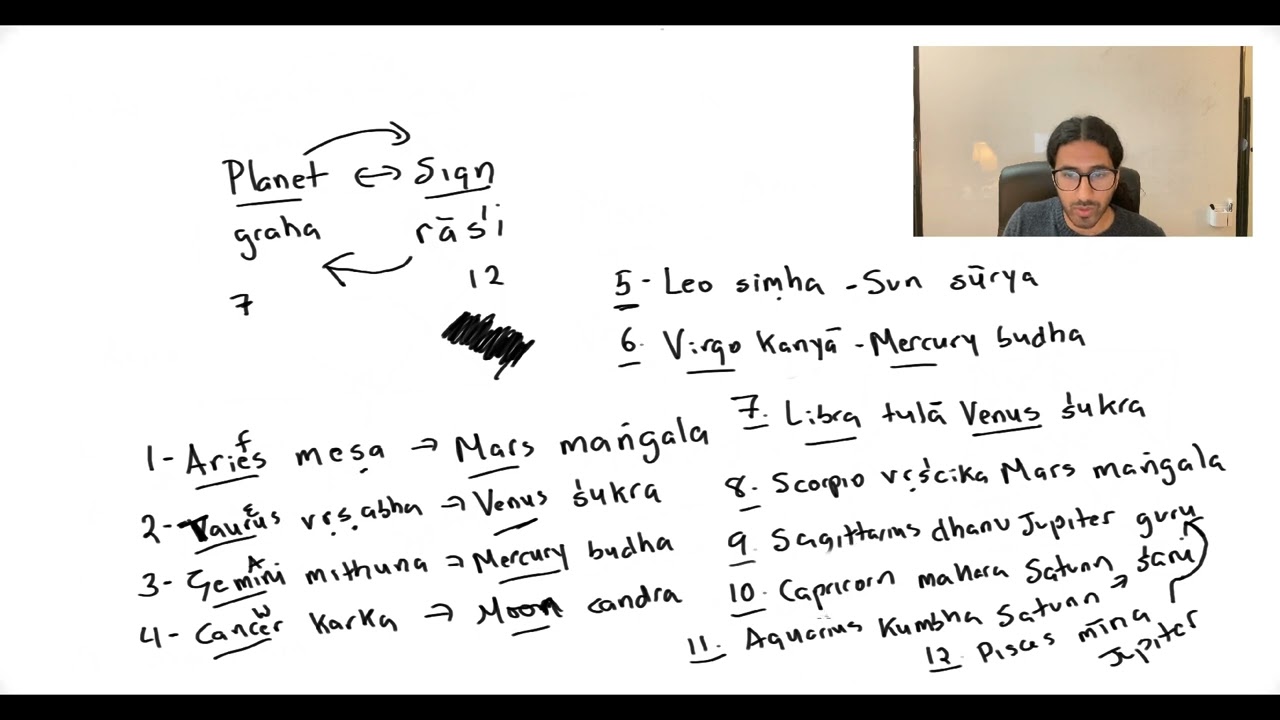 Planet ↔ Sign
graha rāśi
7 12
1- Aries meṣa → Mars maṅgala
f
2- Taurus vṛṣabha → Venus śukra
E
3- Gemini mithuna → Mercury budha
A
4- Cancer Karka → Moon candra
W
5- Leo siṃha - Sun sūrya
6. Virgo Kanyā - Mercury budha
7. Libra tulā Venus śukra
8. Scorpio vṛścika Mars maṅgala
9. Sagittarius dhanu Jupiter guru
10. Capricorn makara Saturn śani
11. Aquarius Kumbha Saturn →
12. Pisces mīna
Jupiter